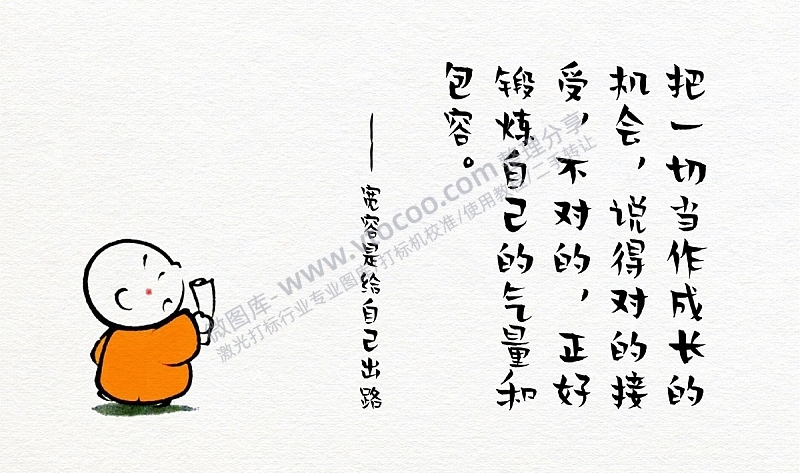 把一切当作成长的
机会，说得对的接
受，不对的，正好
锻炼自己的气量和
包容。
——宽容是给自己出路
微图库-www.vtocoo.com整理分享
激光打标行业专业图库/打标机校准/使用教程/二手转让